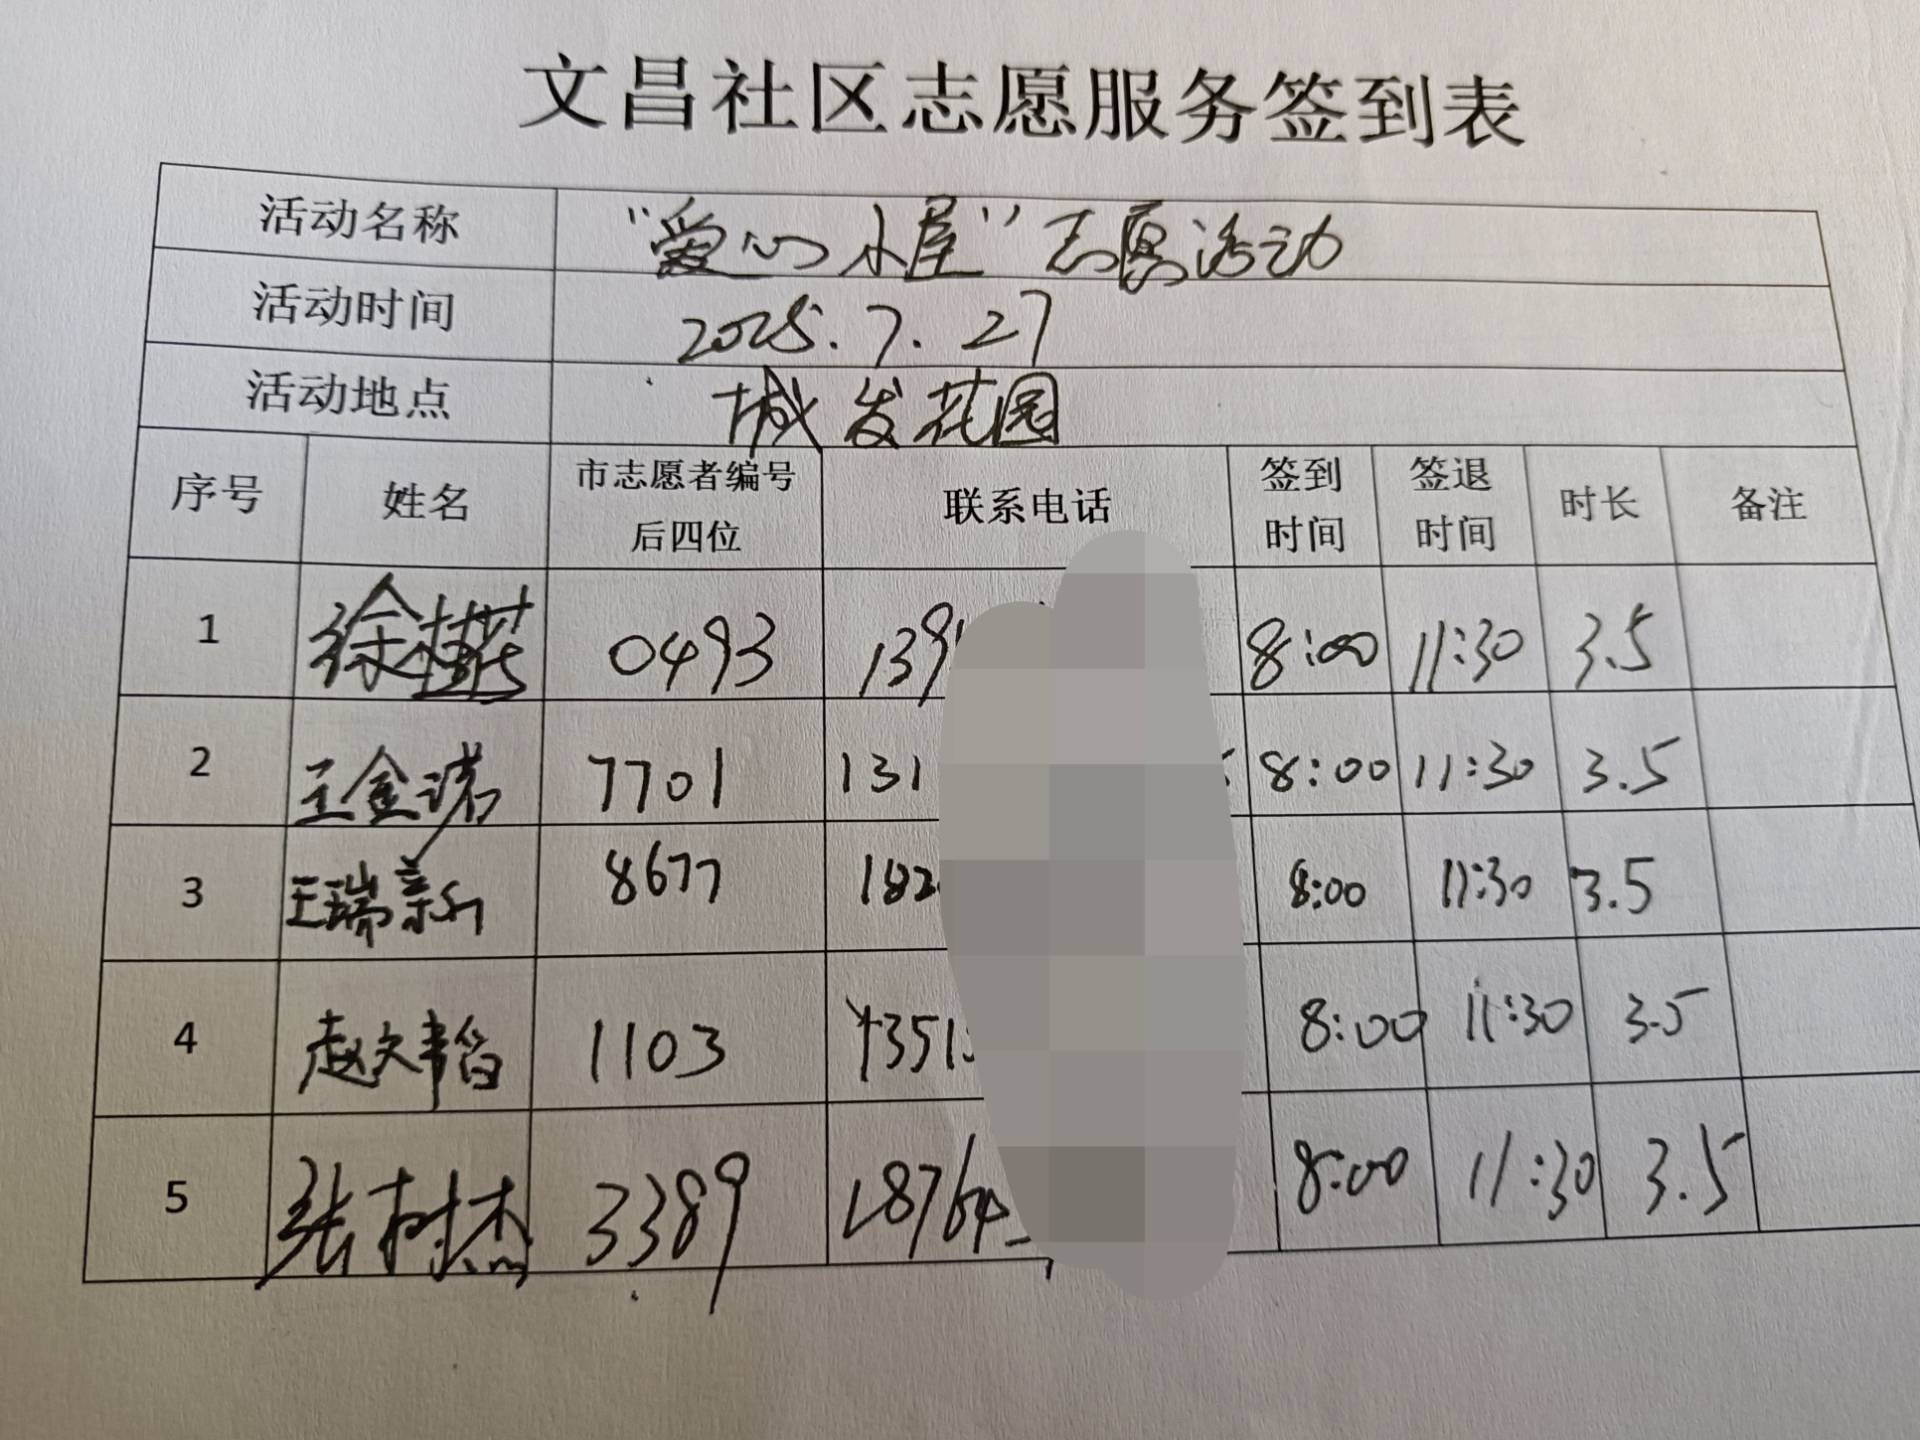 文昌社区志愿服务签到表
活动名称 “爱心小屋”志愿活动
活动时间 2025.7.27
活动地点 城发花园
序号 姓名 市志愿者编号后四位 联系电话 签到时间 签退时间 时长 备注
1 徐 0493 139 8:00 11:30 3.5
2 王金诺 7701 131 8:00 11:30 3.5
3 王瑞新 8677 182 8:00 11:30 3.5
4 赵文韬 1103 1351 8:00 11:30 3.5
5 张树杰 3389 18764 8:00 11:30 3.5